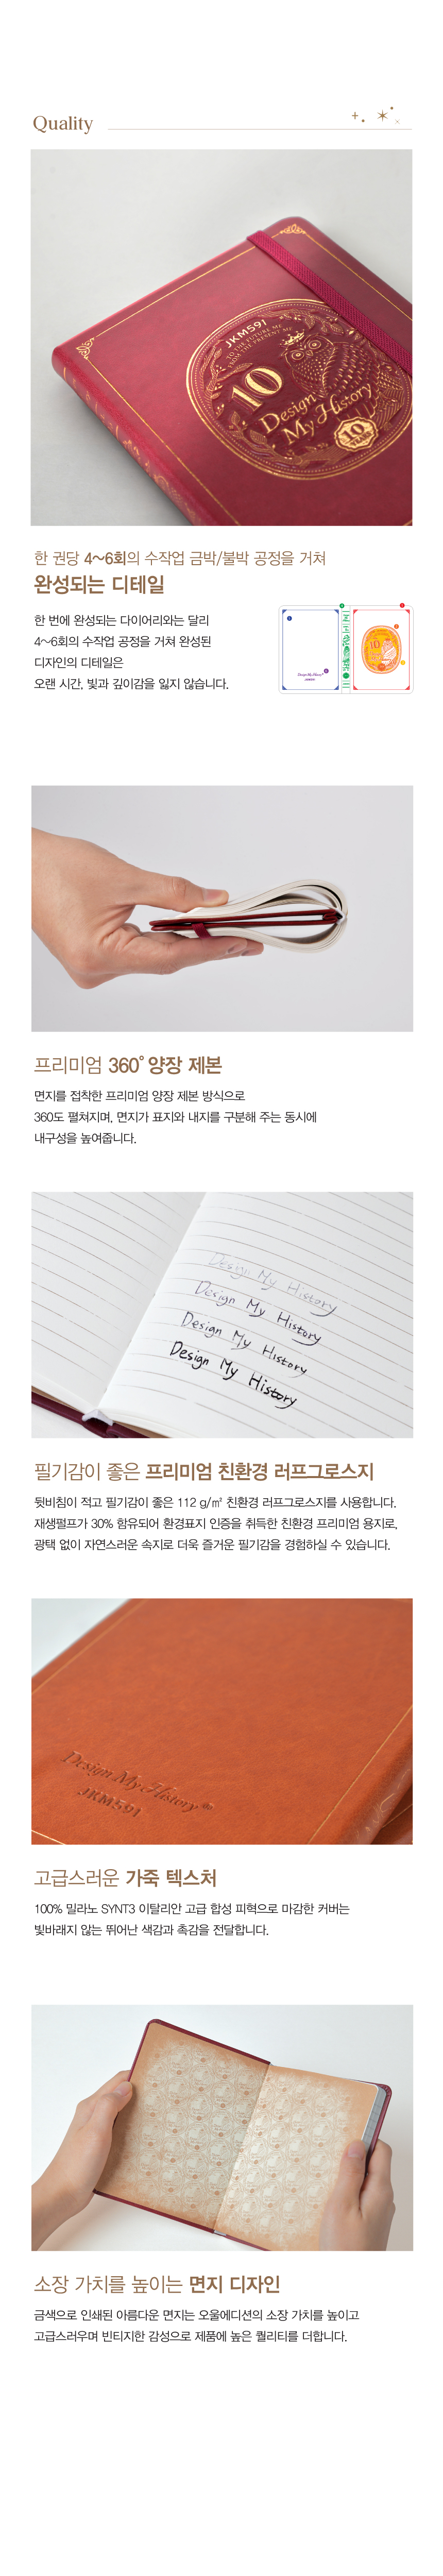 Quality
JKM591
TO MY FUTURE ME
10
Design
My History
10
한 권당 4~6회의 수작업 금박/불박 공정을 거쳐
완성되는 디테일
한 번에 완성되는 다이어리와는 달리
4~6회의 수작업 공정을 거쳐 완성된
디자인의 디테일은
오랜 시간, 빛과 깊이감을 잃지 않습니다.
프리미엄 360° 양장 제본
면지를 접착한 프리미엄 양장 제본 방식으로
360도 펼쳐지며, 면지가 표지와 내지를 구분해 주는 동시에
내구성을 높여줍니다.
Design My History
Design My History
Design My History
Design My History
필기감이 좋은 프리미엄 친환경 러프그로스지
뒷비침이 적고 필기감이 좋은 112 g/㎡ 친환경 러프그로스지를 사용합니다.
재생펄프가 30% 함유되어 환경표지 인증을 취득한 친환경 프리미엄 용지로,
광택 없이 자연스러운 속지로 더욱 즐거운 필기감을 경험하실 수 있습니다.
Design My History
JKM591
고급스러운 가죽 텍스처
100% 밀라노 SYNT3 이탈리안 고급 합성 피혁으로 마감한 커버는
빛바래지 않는 뛰어난 색감과 촉감을 전달합니다.
소장 가치를 높이는 면지 디자인
금색으로 인쇄된 아름다운 면지는 오울에디션의 소장 가치를 높이고
고급스러우며 빈티지한 감성으로 제품에 높은 퀄리티를 더합니다.